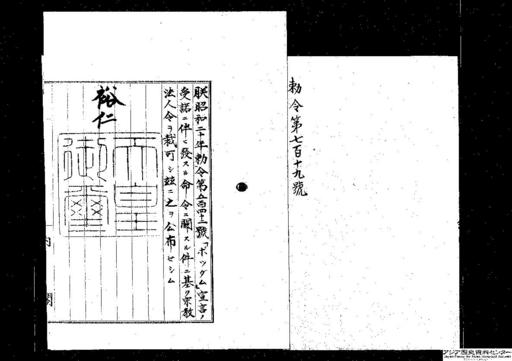 勅令第七百十九號
朕昭和二十年勅令第五百四十二號「ポツダム」宣言ノ
受諾ニ伴ヒ發スル命令ニ關スル件ニ基ク宗教
法人令ヲ裁可シ茲ニ之ヲ公布セシム
裕仁
天皇
御璽
内閣
アジア歴史資料センター
Japan Center for Asian Historical Records